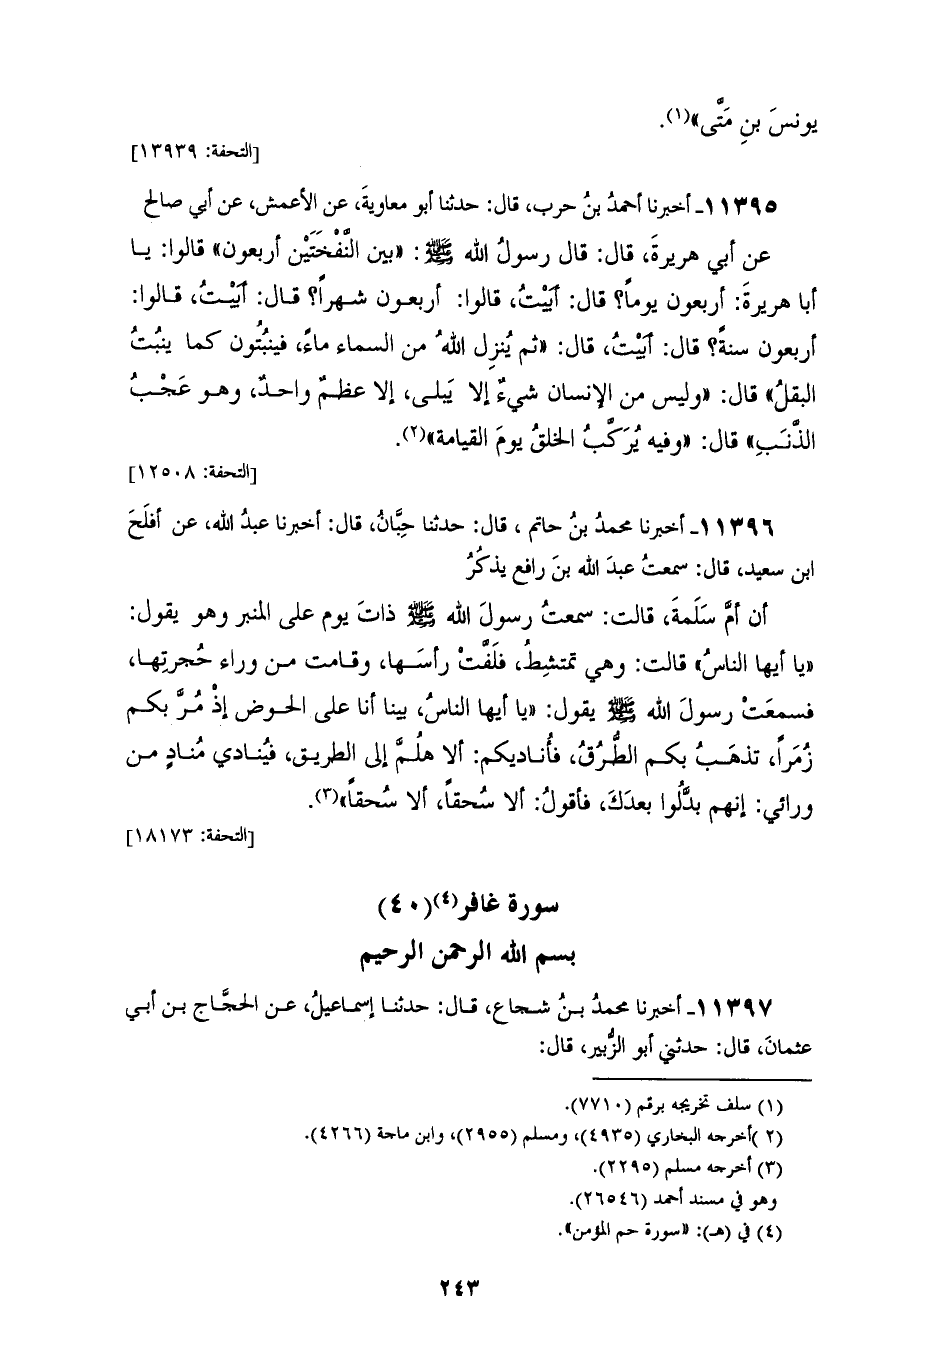 يونسَ بنِ مَتَّى»(١).
[التحفة: ١٣٩٣٩]
١١٣٩٥ـ أخبرنا أحمدُ بنُ حرب، قال: حدثنا أبو معاويةَ، عن الأعمش، عن أبي صالح
عن أبي هريرةَ، قال: قال رسولُ الله ﷺ: «بين النَّفْخَتَيْن أربعون» قالوا: يا
أبا هريرةَ: أربعون يوماً؟ قال: أَبَيْتُ، قالوا: أربعون شهراً؟ قال: أَبَيْتُ، قالوا:
أربعون سنةً؟ قال: أَبَيْتُ، قال: «ثم يُنزِل اللهُ من السماء ماءً، فينبُتُون كما ينبُتُ
البقلُ» قال: «وليس من الإنسان شيءٌ إلا يَبلى، إلا عظمٌ واحدٌ، وهو عَجْبُ
الذَّنَبِ» قال: «وفيه يُرَكَّبُ الخلقُ يومَ القيامة»(٢).
[التحفة: ١٢٥٠٨]
١١٣٩٦ـ أخبرنا محمدُ بنُ حاتم ، قال: حدثنا حِبَّانُ، قال: أخبرنا عبدُ الله، عن أفلَحَ
ابن سعيد، قال: سمعتُ عبدَ الله بنَ رافع يذكُرُ
أن أمَّ سَلَمةَ، قالت: سمعتُ رسولَ الله ﷺ ذاتَ يوم على المنبر وهو يقول:
«يا أيها الناسُ» قالت: وهي تمتشِطُ، فلَفَّتْ رأسَها، وقامت من وراء حُجرتِها،
فسمعَتْ رسولَ الله ﷺ يقول: «يا أيها الناسُ، بينا أنا على الحوض إذْ مُرَّ بكم
زُمَراً، تذهَبُ بكم الطُّرُقُ، فأُناديكم: ألا هلُمَّ إلى الطريق، فيُنادي مُنادٍ من
ورائي: إنهم بدَّلُوا بعدَكَ، فأقولُ: ألا سُحقاً، ألا سُحقاً»(٣).
[التحفة: ١٨١٧٣]
سورة غافر(٤)(٤٠)
بسم الله الرحمن الرحيم
١١٣٩٧ـ أخبرنا محمدُ بنُ شجاع، قال: حدثنا إسماعيلُ، عن الحجَّاج بن أبي
عثمانَ، قال: حدثني أبو الزُّبير، قال:
(١) سلف تخريجه برقم (٧٧١٠).
(٢ )أخرجه البخاري (٤٩٣٥)، ومسلم (٢٩٥٥)، وابن ماجة (٤٢٦٦).
(٣) أخرجه مسلم (٢٢٩٥).
وهو في مسند أحمد (٢٦٥٤٦).
(٤) في (هـ): «سورة حم المؤمن».
٢٤٣